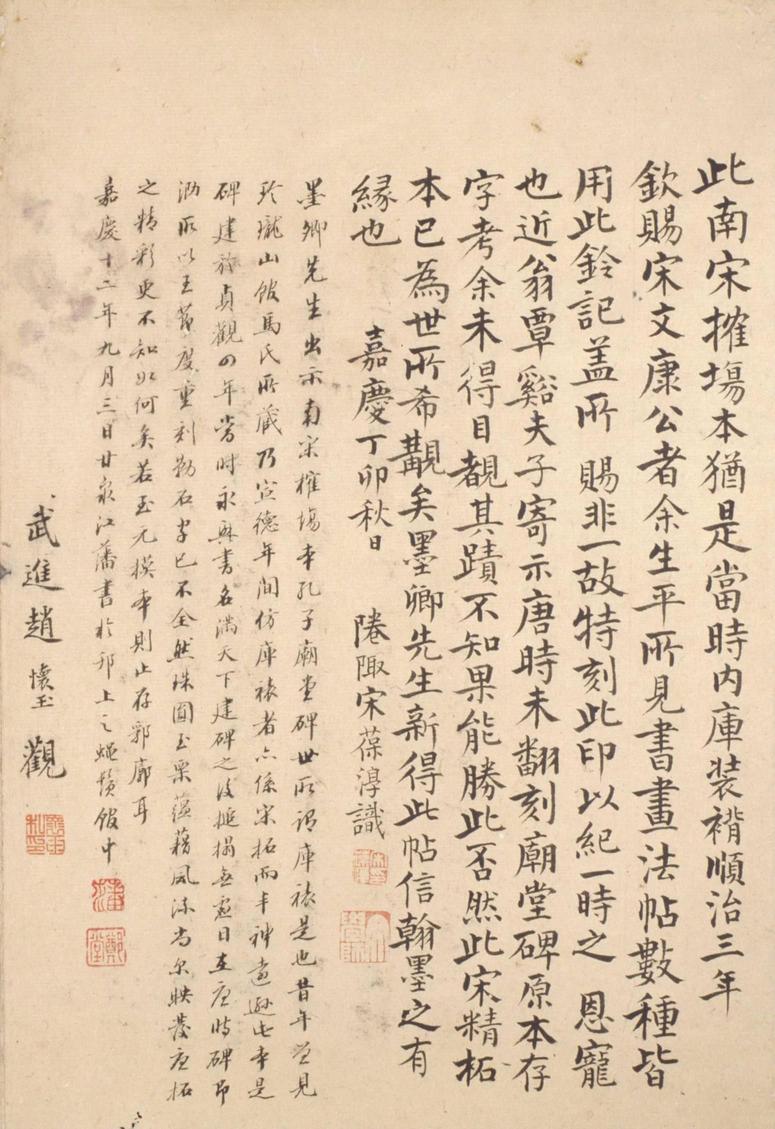 此南宋搉塲本猶是當時内庫装褙順治三年
欽賜宋文康公者余生平所見書畫法帖數種皆
用此鈐記盖所 賜非一故特刻此印以紀一時之 恩寵
也近翁覃谿夫子寄示唐時未翻刻廟堂碑原本存
字考余未得目覩其蹟不知果能勝此否然此宋精柘
本已為世所希覯矣墨卿先生新得此帖信翰墨之有
緣也 嘉慶丁卯秋日 陭陬宋葆淳識
墨卿先生出示南宋榷場本孔子廟堂碑世所謂庫裱是也昔年曾見
玲瓏山館馬氏所藏乃宣德年間仿庫裱者亦係宋拓而丰神遠遜此本是
碑建於貞觀四年当时永興書名滿天下建碑之後搥搨無虚日至唐時碑即
泐所以王節度重刻勒石字已不全然珠圓玉栗蕴藉風流尚尔映發唐拓
之精彩更不知如何矣若至元摸本則止存郭廓耳
嘉慶十二年九月三日甘泉江藩書於邗上之蝇鬚館中
武進趙懷玉觀